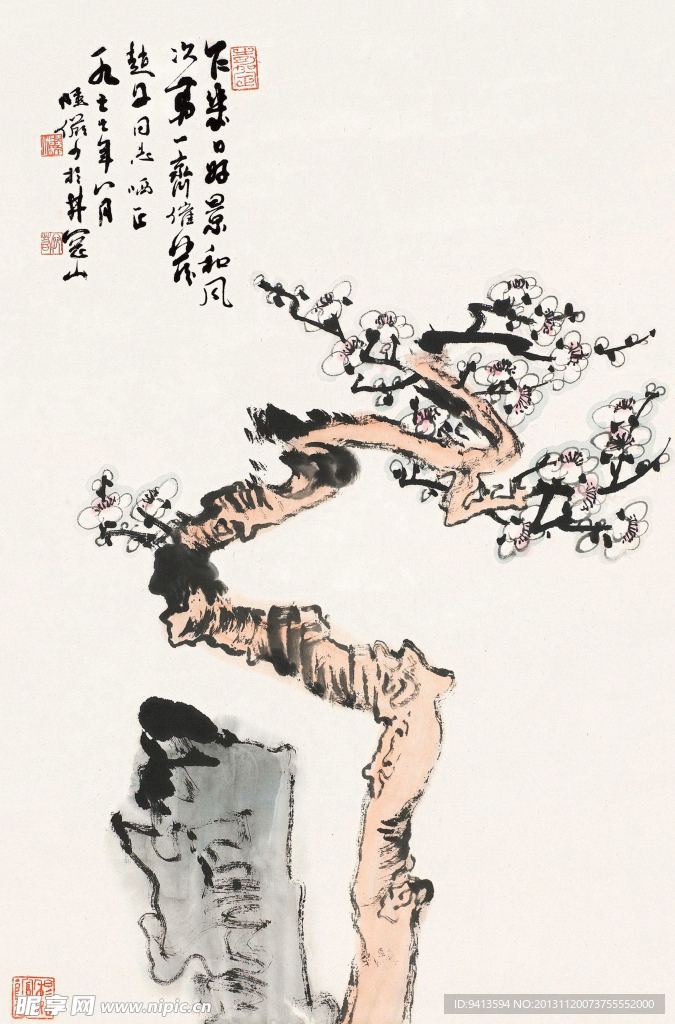 乍幾日好景和風
次第一齊催發
趙丹同志嘱正
一九七七年八月
陸儼少於井岡山
嘉定
昵享网 www.nipic.cn
ID:9413594 NO:20131120073755552000